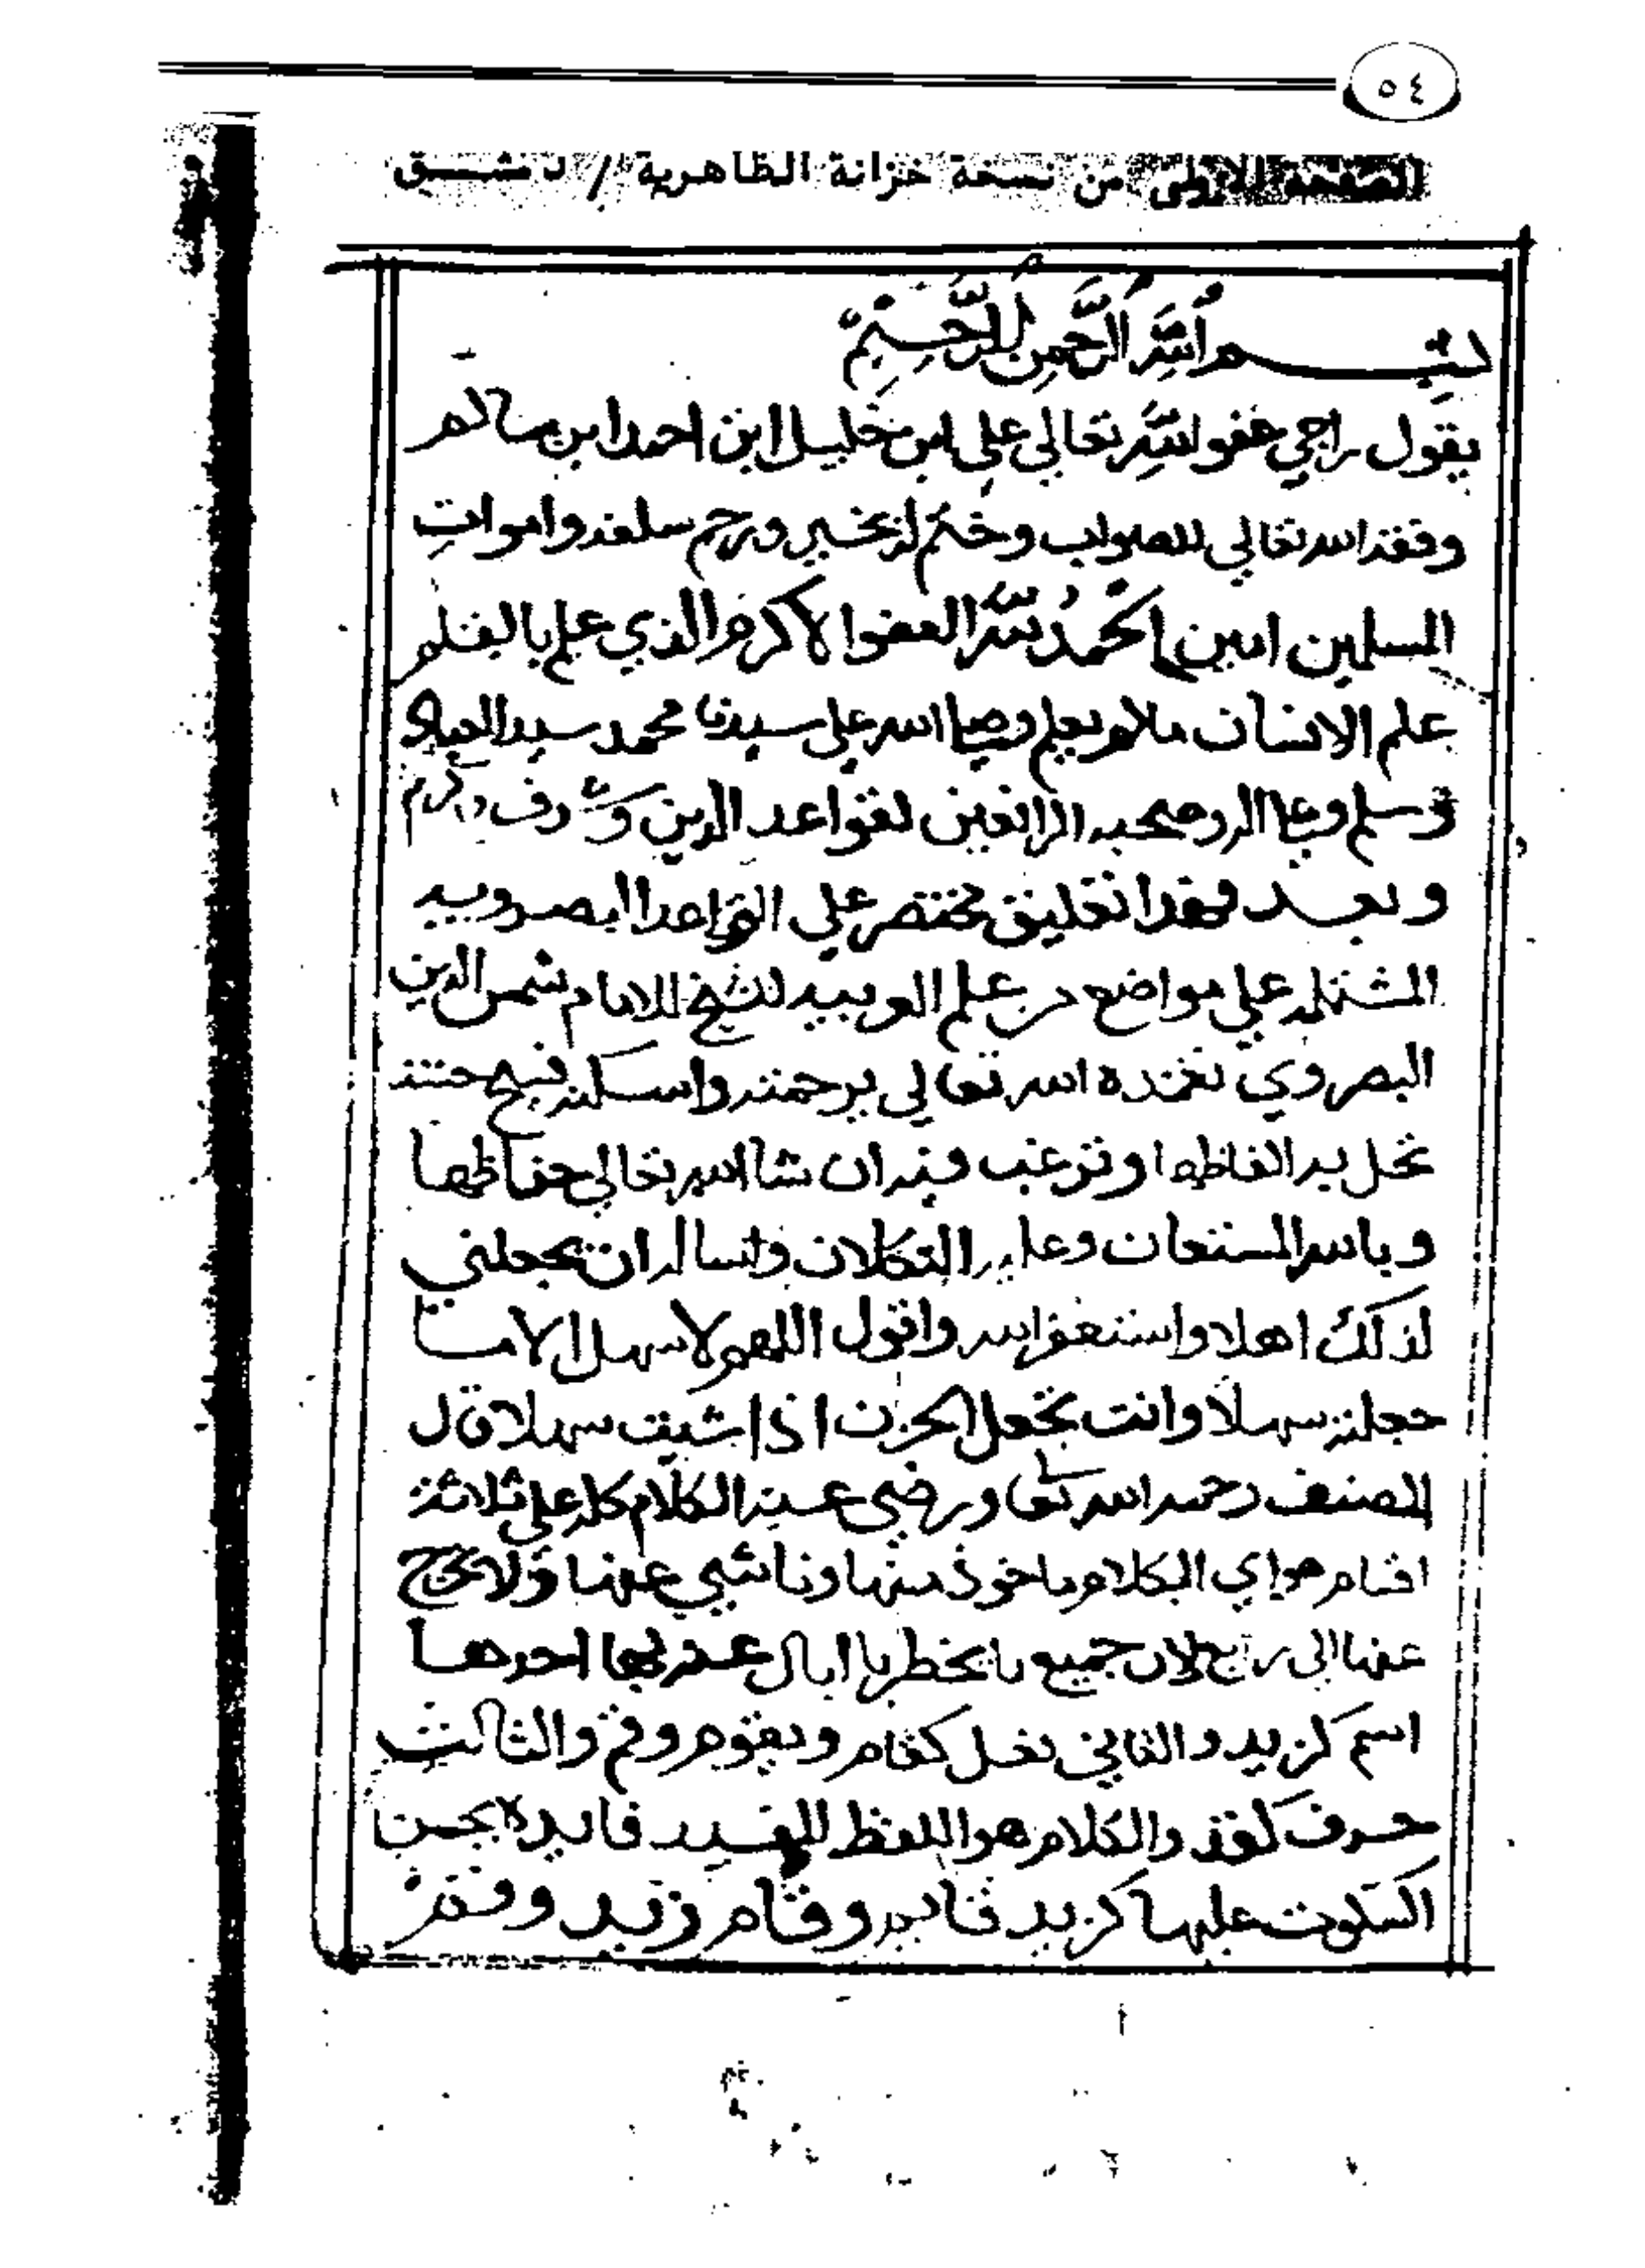 ٥٤
الصفحة الاولى من نسخة خزانة الظاهرية / دمشق
بسم الله الرحمن الرحيم
يقول راجي عفو الله تعالي علي ابن خليل ابن احمد ابن سالم
وفقه الله تعالي للصواب وختم له بخير ورحم سلفه واموات
المسلمين امين الحمد لله العفوا الاكرم الذي علم بالقلم
علم الانسان مالم يعلم وصلي الله علي سيدنا محمد سيد
وسلم وعلي اله وصحبه الرافعين لقواعد الدين وشرف وكرم
وبعد فهذا تعليق مختصر علي القواعد البصرويه
المشتمله علي مواضع من علم العربيه للشيخ الامام شمس الدين
البصروي تغمده الله تعالي برحمته واسكنه فسيح جنته
تحل به الفاظها وترغب فيه ان شا الله تعالي حفاظها
وبالله المستعان وعليه التكلان واسا له ان يجعلني
لذلك اهلا واستغفر الله واقول اللهم لا سهل الا ما
جعلته سهلا وانت تجعل الحزن اذا شيت سهلا قال
المصنف رحمه الله تعا ورضي عنه الكلام كله علي ثلاثة
اقسام هو اي الكلام ماخوذ منها وناشي عنها ولا يخرج
عنها الي رابع لان جميع ما يخطر بالبال احدها
اسم كزيد والثاني فعل كقام ويقوم وقم والثالث
حرف كقد والكلام هو اللفظ المفيد فايده يحسن
السكوت عليها كزيد قايم وقام زيد وقم